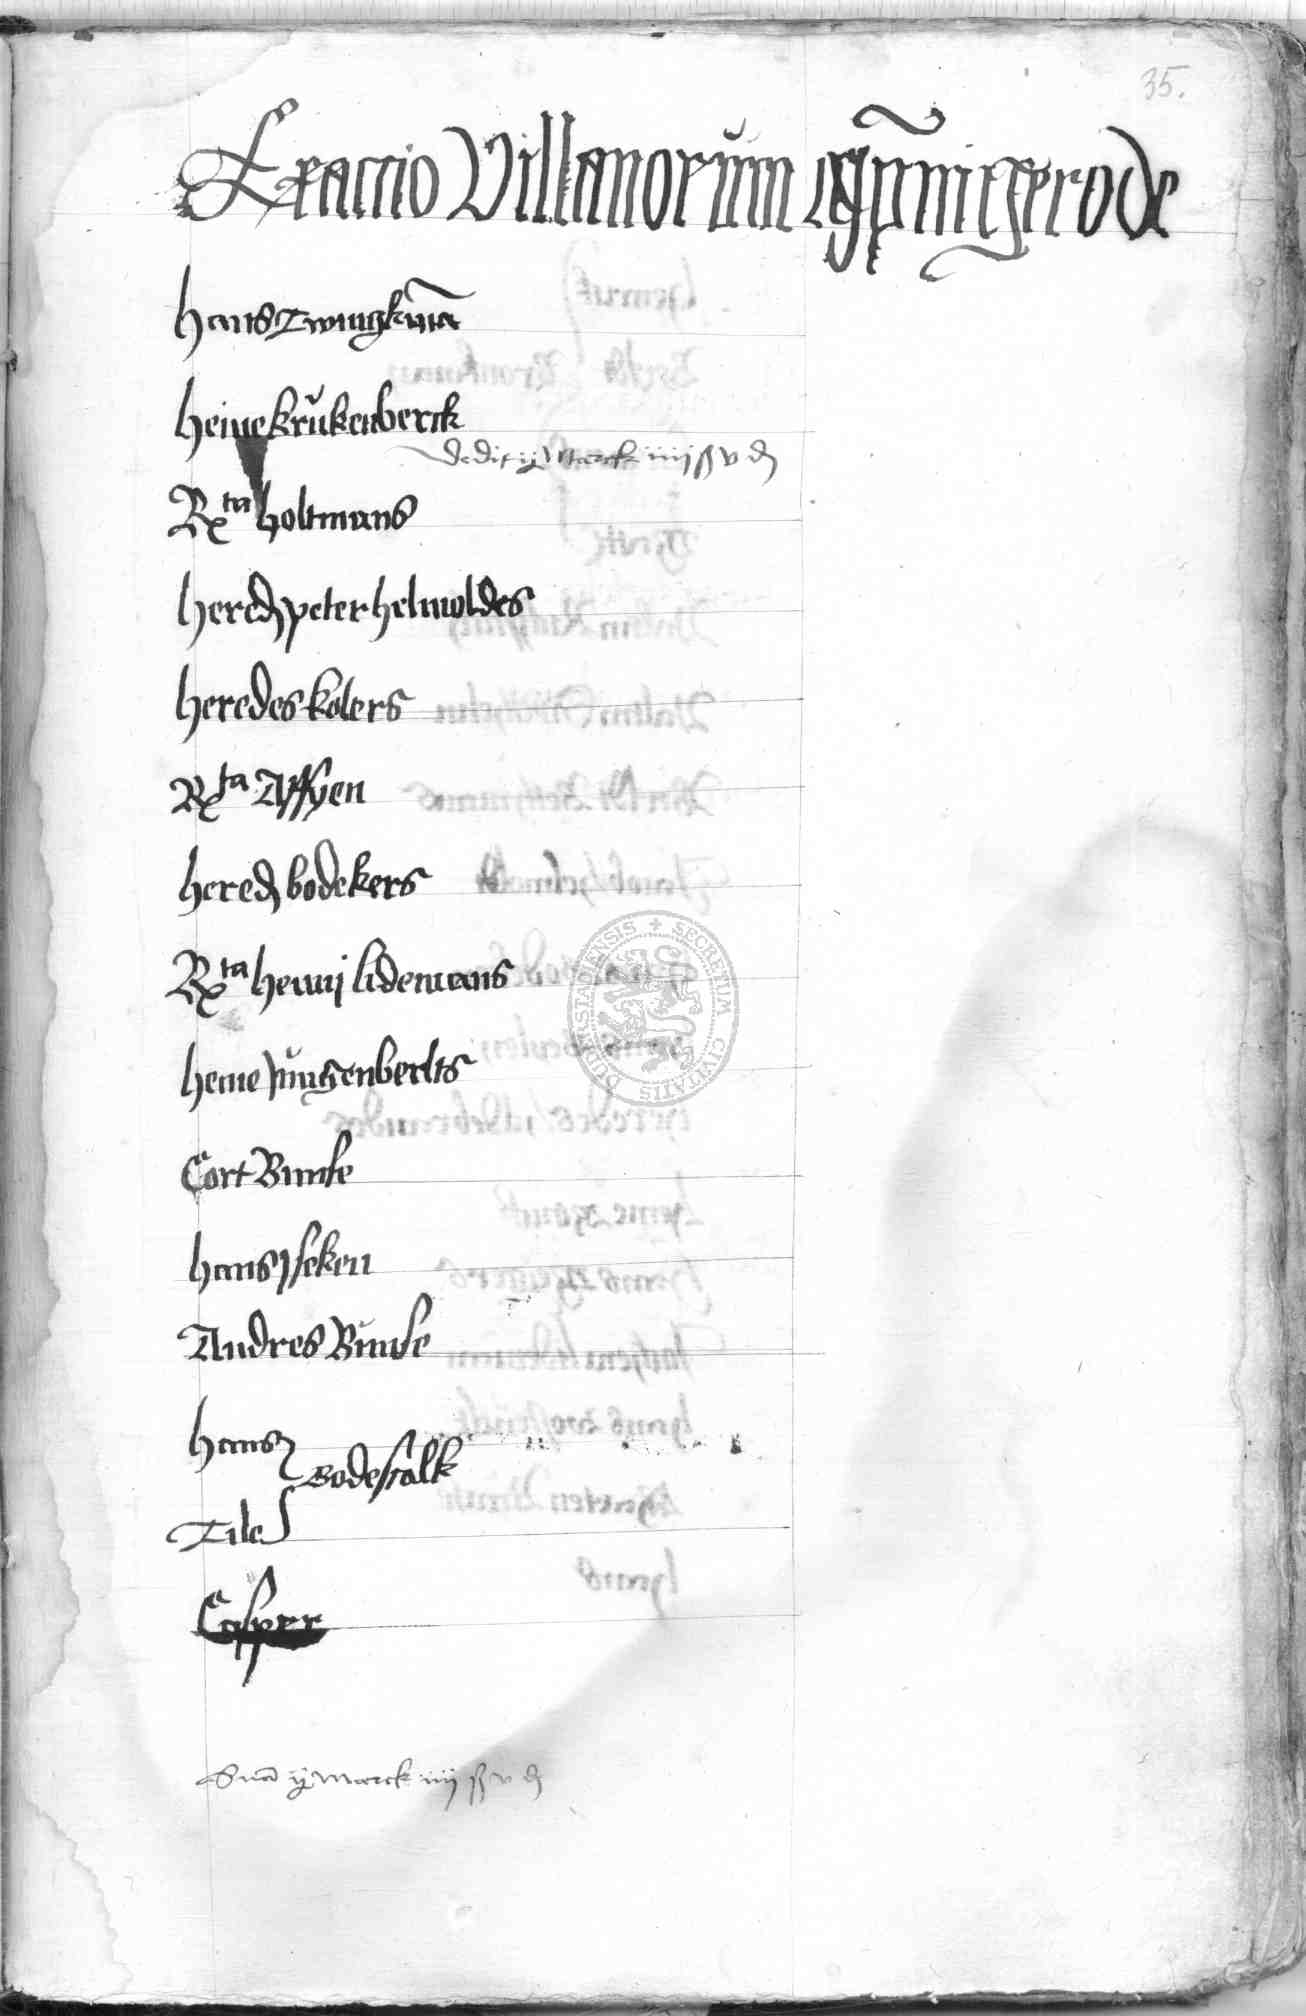 35.
Exactio Villanorum
Hans Twingkma
Heine krukenberck
dedit ij Marck iiij ß v d
Rta Holtmans
Hered peter helmoldes
Heredes kolers
Rta Assyen
Hered bodekers
Rta Henrij lidemans
Heine
Cort Bunse
Hans iseken
Andres Bunse
Hans
Bodestalk
Tile
Casper
Suma ij Marck iiij ß v d
SECRETUM CIVITATIS DUDERSTADIENSIS